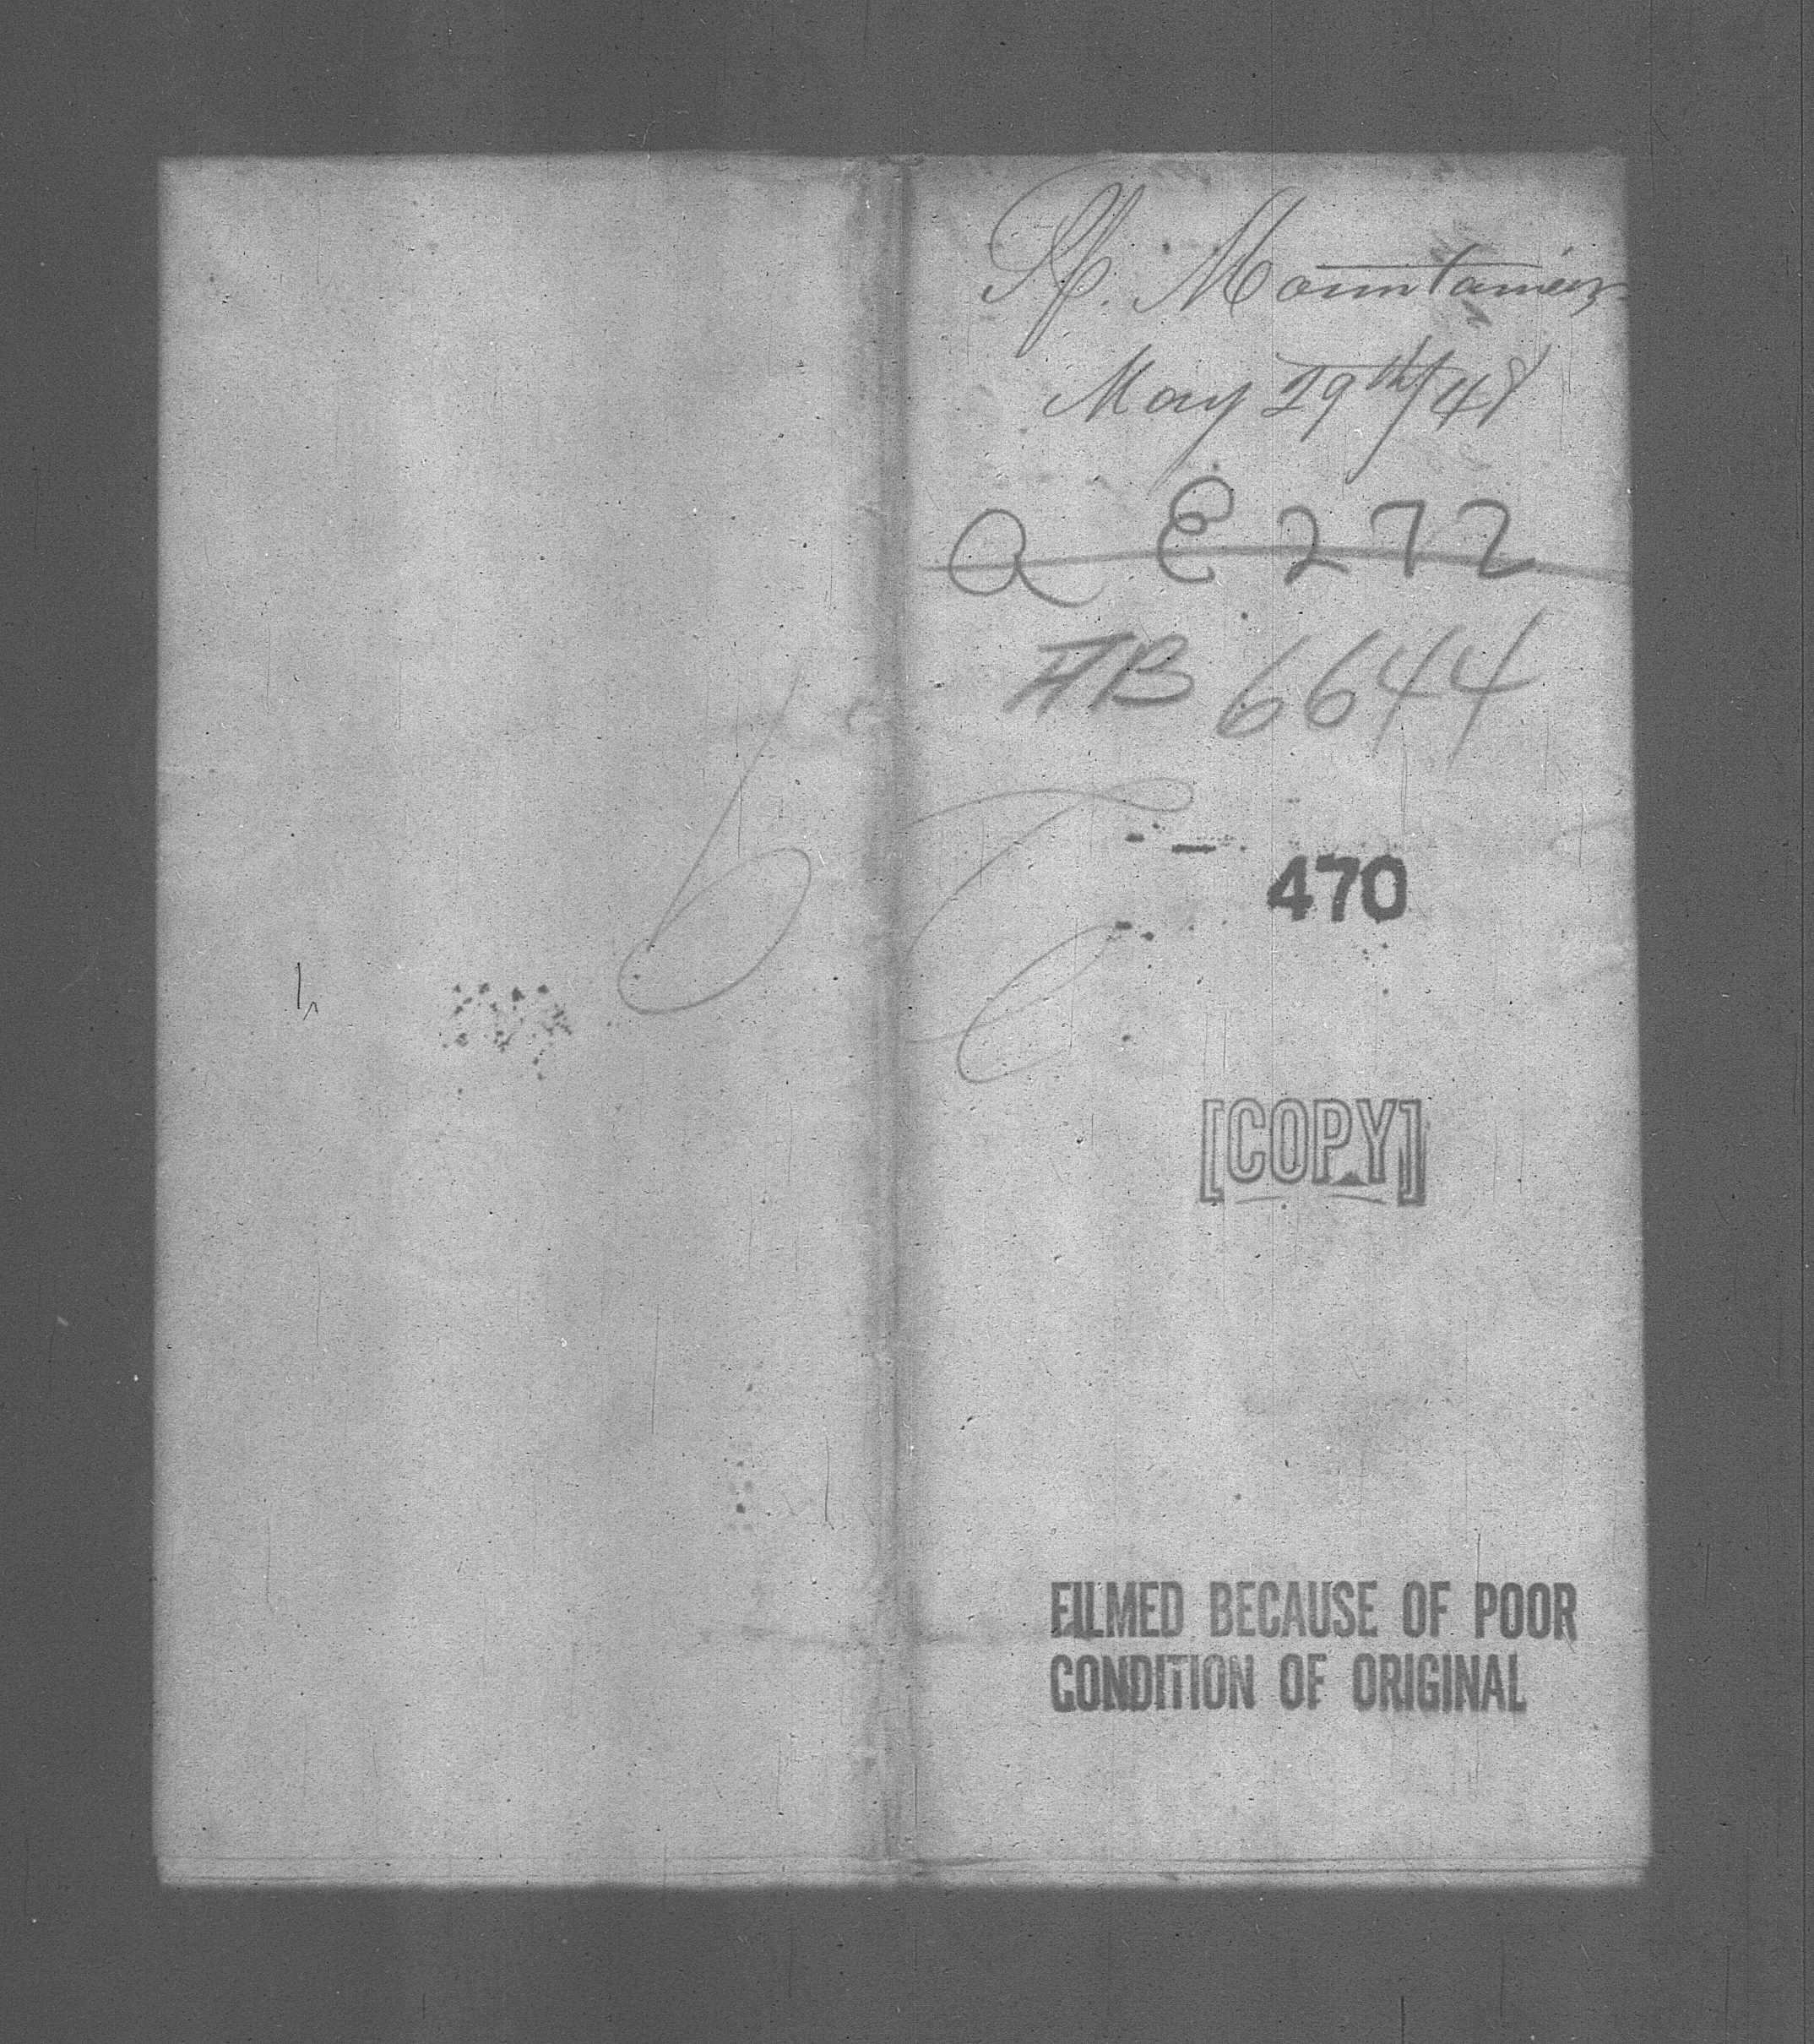 Sp. Mountaineer
May 29th/48
Q E 272
AB 6644
470
[COPY]
FILMED BECAUSE OF POOR
CONDITION OF ORIGINAL